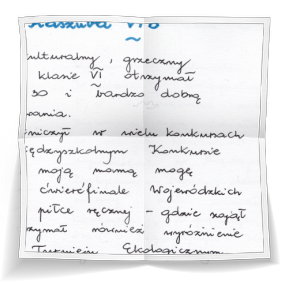 Kaszuba VI b
ulturalny, grzeczny
klasie VI otrzymał
so i bardzo dobrą
wania.
niczył w wielu konkursach
iędzyszkolnym Konkursie
moją mamą mogę
ćwierćfinale Wojewódzkich
piłce ręcznej - gdzie zajął
zymał również wyróżnienie
Turnieju Ekologicznym